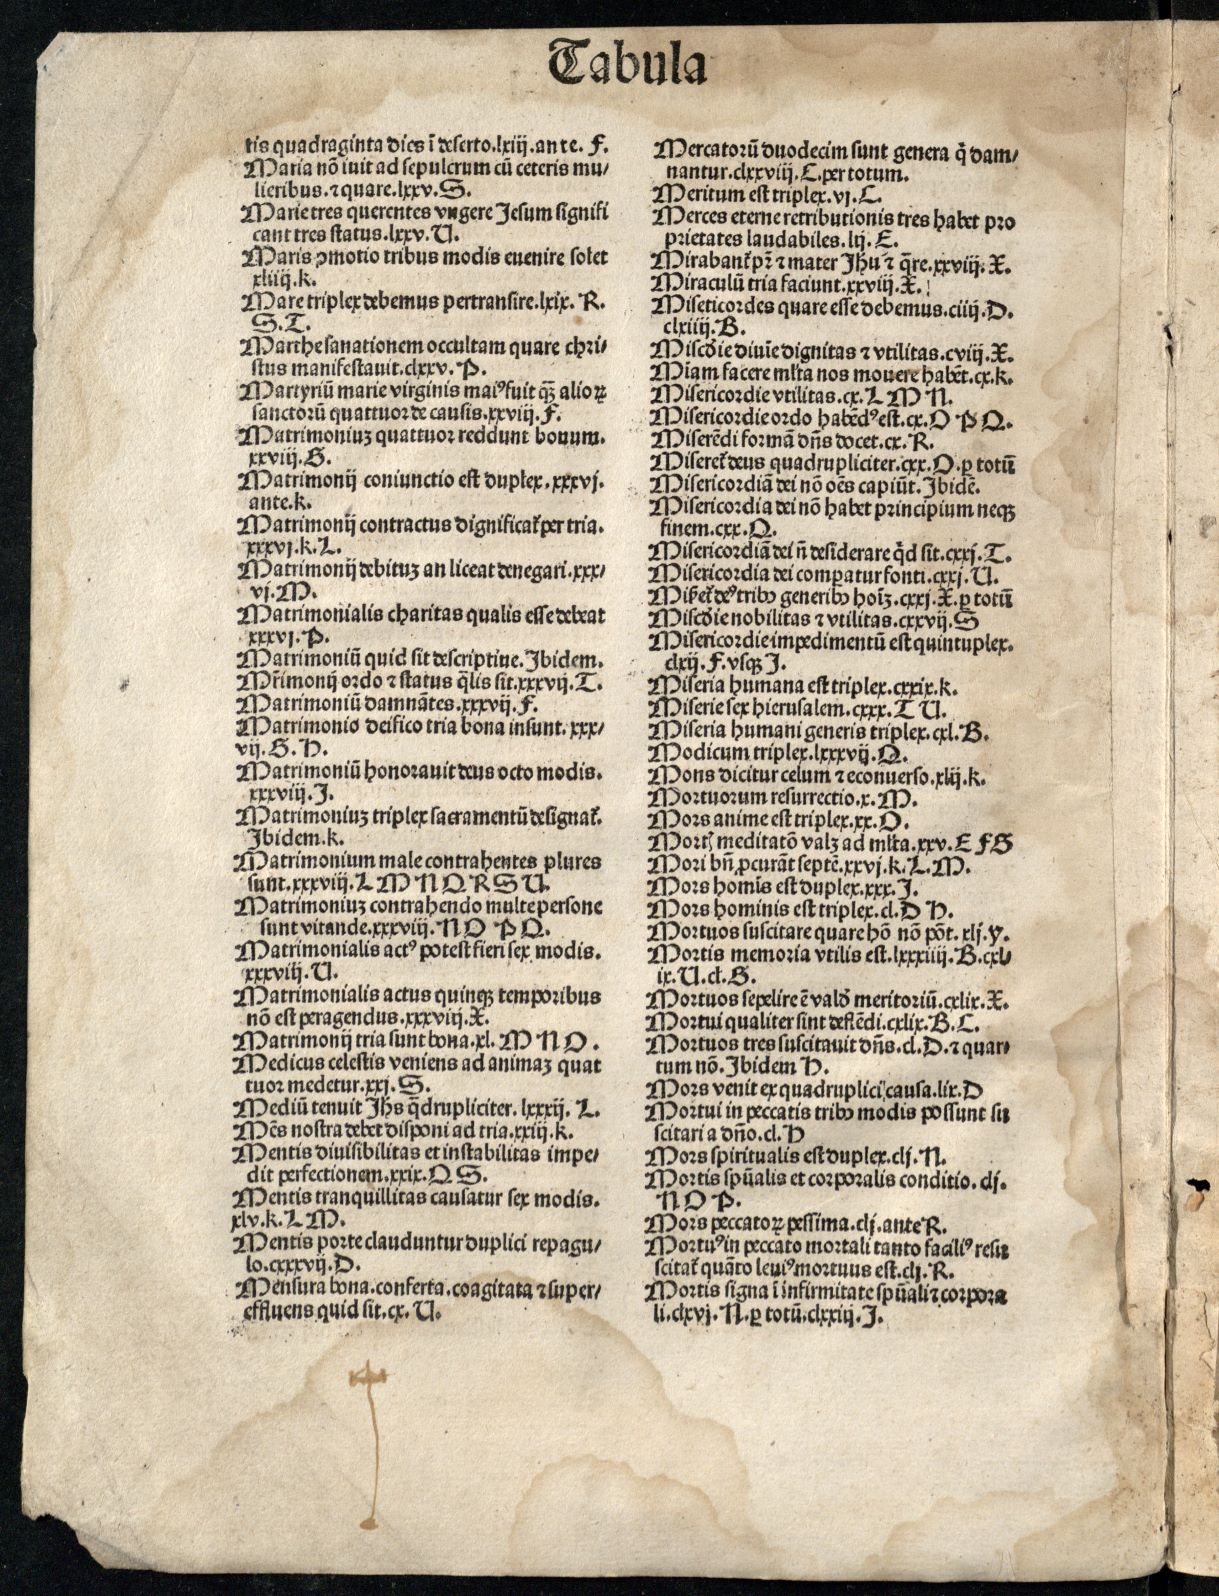 Tabula
tis quadraginta dies ī deserto.lxiij.ante. F.
Maria nō iuit ad sepulcrum cū ceteris mu/
lieribus.⁊ quare.lxxv.S.
Marie tres querentes vngere Jesum signifi
cant tres status.lxxv.U.
Maris ꝯmotio tribus modis euenire solet
xliiij.k.
Mare triplex debemus pertransire.lxix. R.
S.T.
Marthe sanationem occultam quare chri/
stus manifestauit.clxxv.P.
Martyriū marie virginis maiꝰ fuit qꝫ alioꝝ
sanctorū quattuor de causis.xxviij.F.
Matrimoniuꝫ quattuor reddunt bonum.
xxviij.G.
Matrimonij coniunctio est duplex.xxxvj.
ante.k.
Matrimonij contractus dignificat᷑ per tria.
xxxvj.k.L.
Matrimonij debituꝫ an liceat denegari.xxx/
vj.M.
Matrimonialis charitas qualis esse debeat
xxxvj.P.
Matrimoniū quid sit descriptiue.Ibidem.
Mr̄imonij ordo ⁊ status q̄lis sit.xxxvij.T.
Matrimoniū damnātes.xxxvij.F.
Matrimonio deifico tria bona insunt.xxx/
vij.G.H.
Matrimoniū honorauit deus octo modis.
xxxviij.I.
Matrimoniuꝫ triplex sacramentū designat᷑.
Ibidem.k.
Matrimonium male contrahentes plures
sunt.xxxviij.L M N Q R S U.
Matrimoniuꝫ contrahendo multe persone
sunt vitande.xxxviij.N O P Q.
Matrimonialis actꝰ potest fieri sex modis.
xxxviij.U.
Matrimonialis actus quinqꝫ temporibus
nō est peragendus.xxxviij.X.
Matrimonij tria sunt bona.xl.M N O.
Medicus celestis veniens ad animaꝫ quat
tuor medetur.xxj.S.
Mediū tenuit Jhs q̄drupliciter.lxxxij. L.
Mēs nostra debet disponi ad tria.xxiij.k.
Mentis diuisibilitas et instabilitas impe/
dit perfectionem.xxix.Q S.
Mentis tranquillitas causatur sex modis.
xlv.k.L M.
Mentis porte clauduntur duplici repagu/
lo.cxxxvij.D.
Mensura bona.conferta.coagitata ⁊ super/
effluens quid sit.cx.U.
Mercatorū duodecim sunt genera q̄ dam/
nantur.clxxviij.C.per totum.
Meritum est triplex.vj.C.
Merces eterne retributionis tres habet pro
prietates laudabiles.lij.E.
Mirabant᷑ pr̄ ⁊ mater Jhu ⁊ q̄re.xxviij.X.
Miraculū tria faciunt.xxviij.X.
Misericordes quare esse debemus.ciiij.D.
clxiiij.B.
Miscd̓ie diuīe dignitas ⁊ vtilitas.cviij.X.
Miam facere mlta nos mouere habēt.cx.k.
Misericordie vtilitas.cx.L M N.
Misericordie ordo habēdꝰ est.cx.O P Q.
Miserēdi formā dn̄s docet.cx.R.
Miseret᷑ deus quadrupliciter.cxx.O.ꝑ totū
Misericordiā dei nō oēs capiūt.Ibidē.
Misericordia dei nō habet principium neqꝫ
finem.cxx.Q.
Misericordiā dei n̄ desiderare q̄d sit.cxxj.T.
Misericordia dei comparatur fonti.cxxj.U.
Miſ̄et᷑ deꝰ tribꝰ generibꝰ hoīꝫ.cxxj.X.ꝑ totū
Miscd̓ie nobilitas ⁊ vtilitas.cxxvij.S
Misericordie impedimentū est quintuplex.
clxij.F.vsqꝫ I.
Miseria humana est triplex.cxxix.k.
Miserie sex hierusalem.cxxx.T U.
Miseria humani generis triplex.cxl.B.
Modicum triplex.lxxxvij.Q.
Mons dicitur celum ⁊ econuerso.xlij.k.
Mortuorum resurrectio.x.M.
Mors anime est triplex.xx.O.
Mortꝭ meditatō valꝫ ad mlta.xxv.E F G
Mori bn̄ ꝓcurāt septē.xxvj.k.L.M.
Mors homīs est duplex.xxx.I.
Mors hominis est triplex.cl.D H.
Mortuos suscitare quare hō nō pōt.xlj.y.
Mortis memoria vtilis est.lxxxiiij.B.cxl/
ix.U.cl.G.
Mortuos sepelire ē vald̓ meritoriū.cxlix.X.
Mortui qualiter sint deflēdi.cxlix.B.C.
Mortuos tres suscitauit dn̄s.cl.D.⁊ quar/
tum nō.Ibidem H.
Mors venit ex quadruplici causa.lix.D
Mortui in peccatis tribꝰ modis possunt su
scitari a dn̄o.cl.H
Mors spiritualis est duplex.clj.N.
Mortis spūalis et corporalis conditio.clj.
N O P.
Mors peccatoꝝ pessima.clj.ante R.
Mortuꝰ in peccato mortali tanto faciliꝰ resu
scitat᷑ quāto leuiꝰ mortuus est.clj.R.
Mortis signa ī infirmitate spūali ⁊ corpora
li.clxvj.N.ꝑ totū.clxxiij.I.